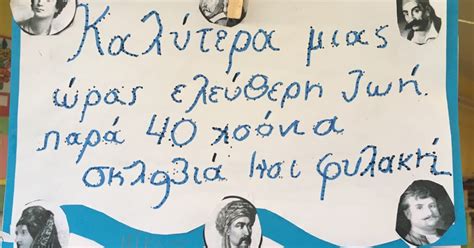 Καλύτερα μιας
ώρας ελεύθερη ζωή
παρά 40 χρόνια
σκλαβιά και φυλακή